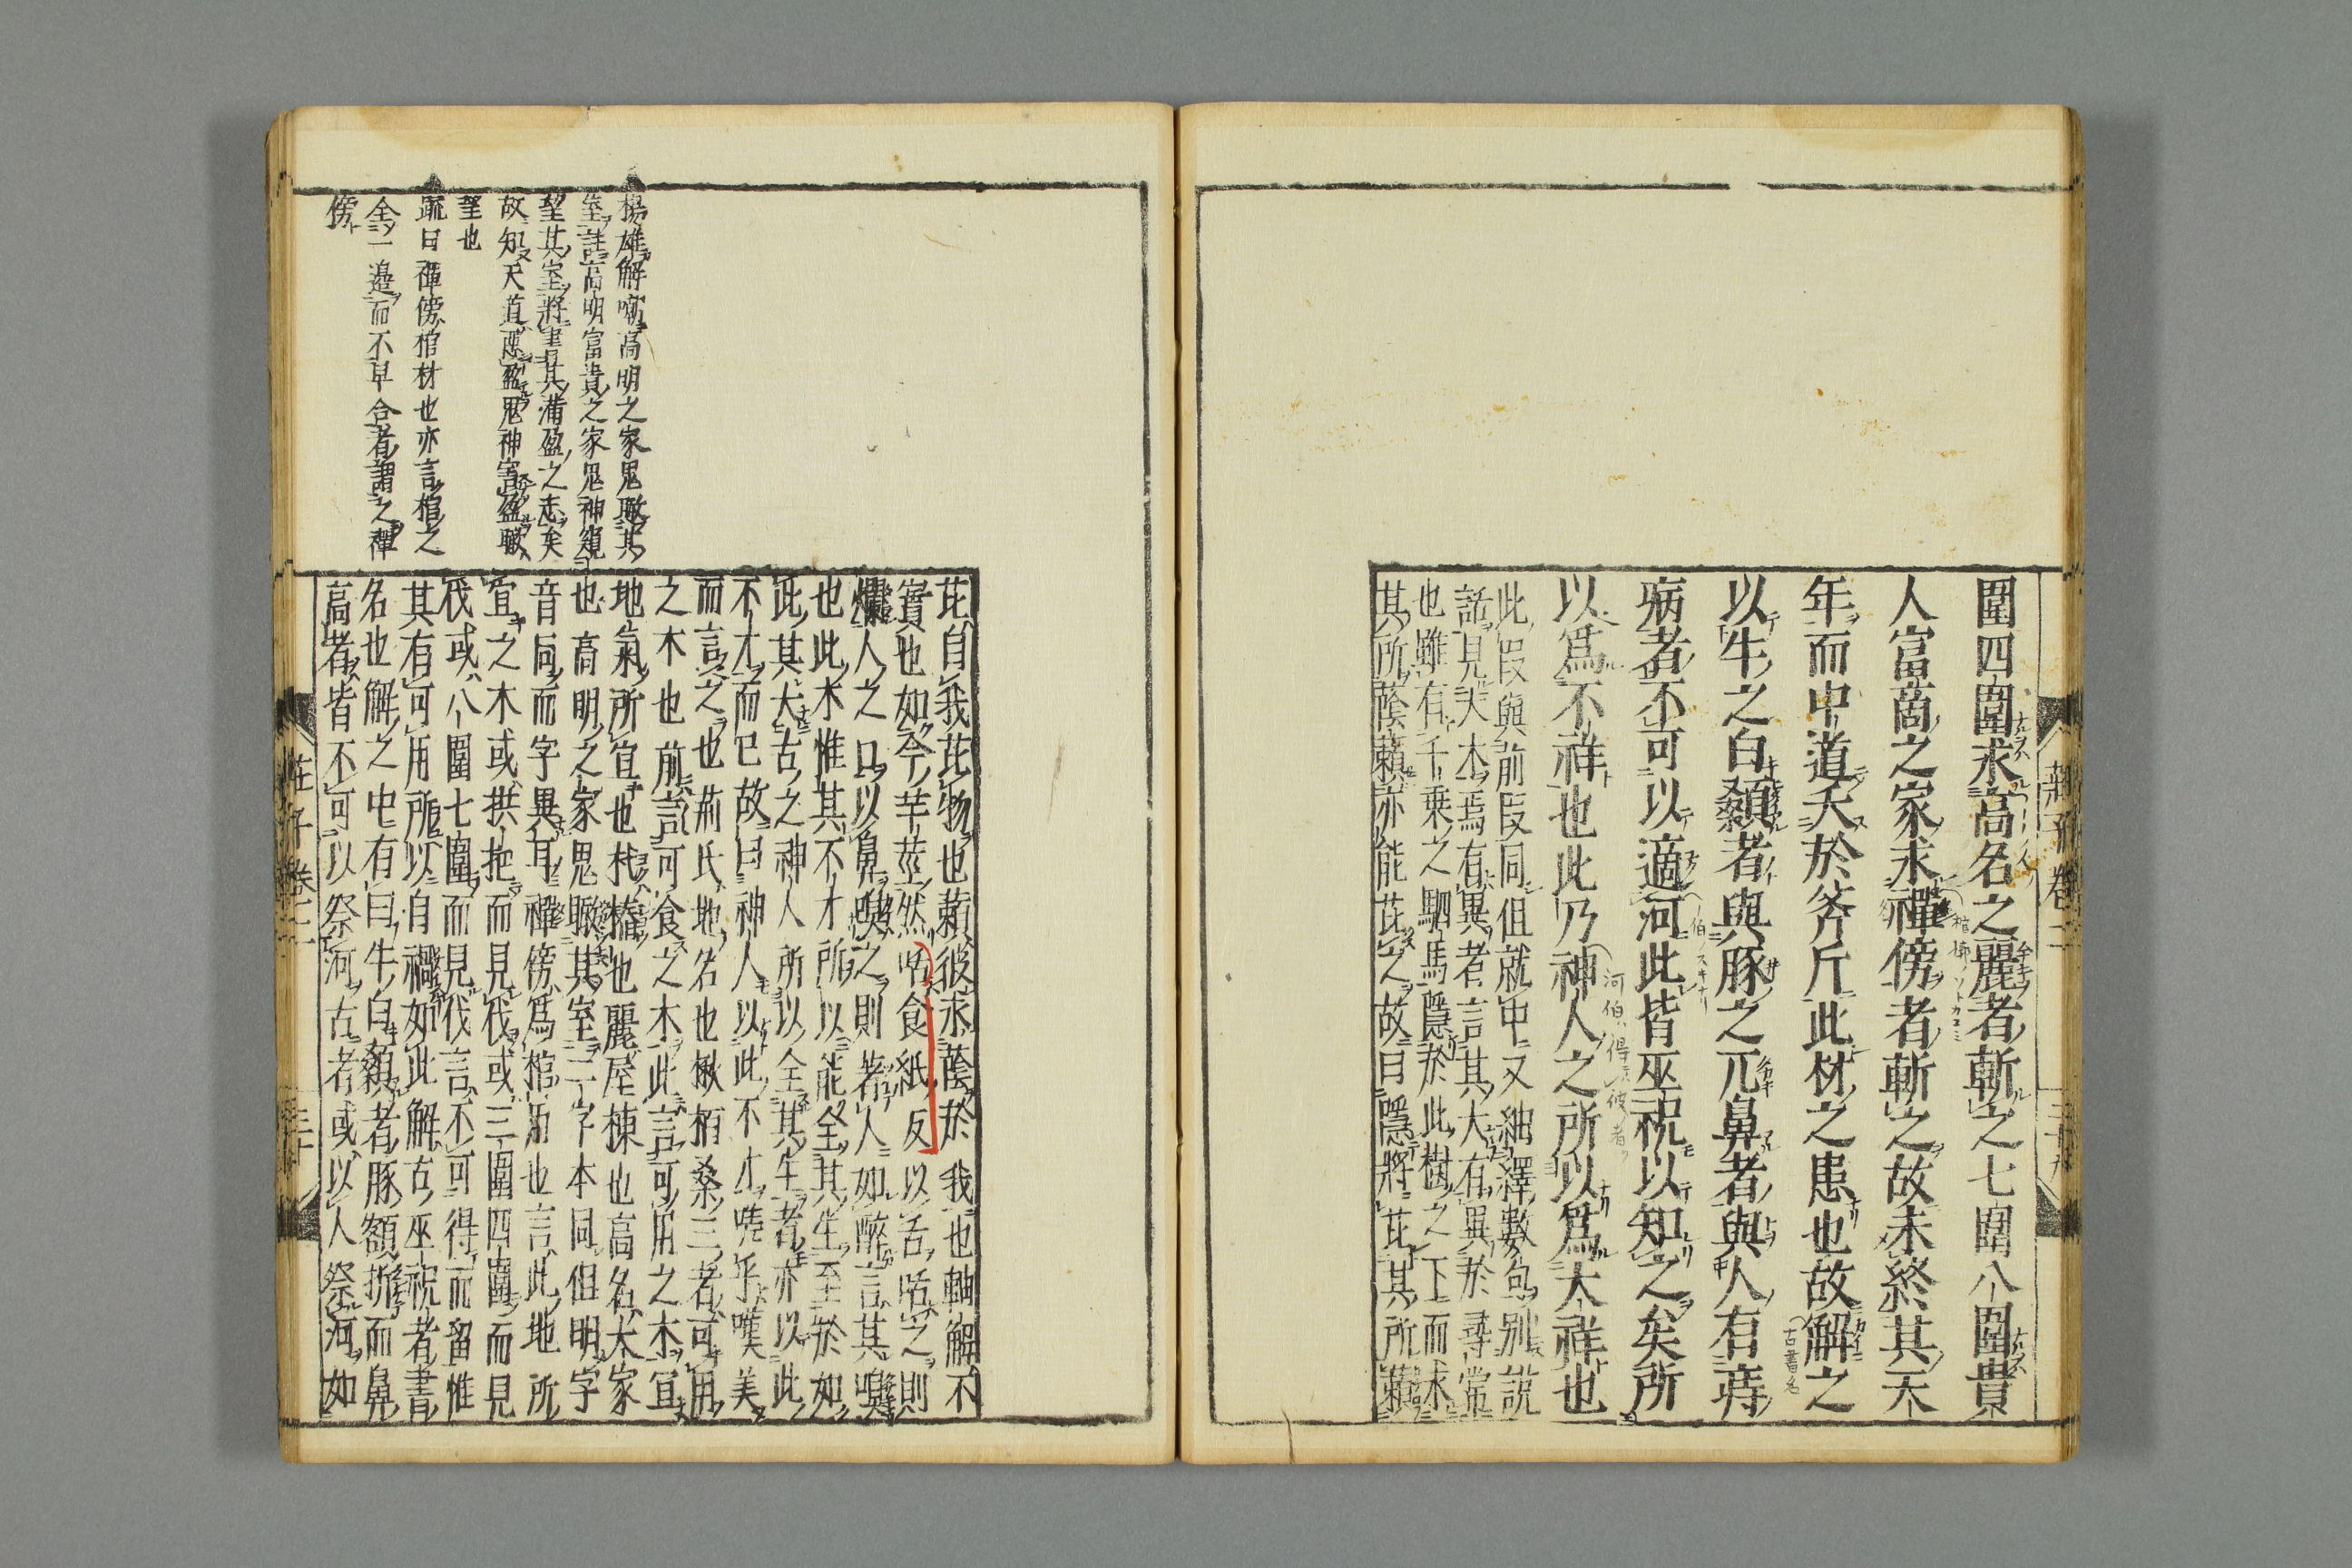 圍四圍求高名之麗者斬之七圍八圍貴
人富商之家求禪傍者斬之故未終其天
年而中道夭於斧斤此材之患也故解之
以牛之白顙者與豚之亢鼻者與人有痔
病者不可以適河此皆巫祝以知之矣所
以爲不祥也此乃神人之所以爲大祥也
此段與前段同但就中又紬繹數句別說
話見大木焉有異者言其大有異於尋常
也雖有千乘之駟馬隱於此樹之下而求
其所蔭藾亦能芘之故曰隱將芘其所藾
莊子卷二
芘自我芘物也藾彼求蔭於我也軸解不
實也如今芋莖然咶食紙反以舌咶之則
爛人之口以鼻嗅之則著人如醉言其嗅
也此木惟其不才所以能全其生至於如
此其大古之神人所以全其生者亦以此
不才而已故曰神人以此不才嗟乎嘆美
而言之也荊氏地名也楸柏桑三者可用
之木也前言可食之木此言可用之木宜
地氣所宜也杙橛也麗屋棟也高名大家
也高明之家鬼瞰其室二字本同但明字
音同而字異耳禪傍爲棺用也言此地所
宜之木或拱把而見伐或三圍四圍而見
伐或八圍七圍而見伐言不可得而留惟
其有可用所以自禍如此解古巫祝者書
名也解之中有曰牛白顙者豚額折而鼻
高者皆不可以祭河古者或以人祭河如
楊雄解嘲高明之家鬼瞰其
室註高明富貴之家鬼神窺
望其室將害其滿盈之志矣
故知天道惡盈鬼神害盈瞰
望也
疏曰禪傍棺材也亦言棺之
全一邊而不早合者謂之禪
傍
莊子卷二